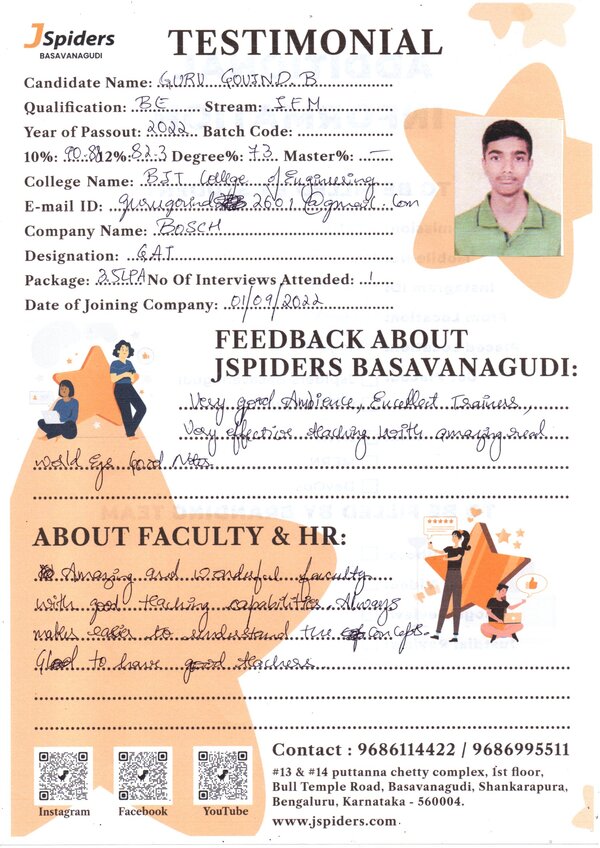 JSpiders
BASAVANAGUDI
TESTIMONIAL
Candidate Name: GURU GOVIND B
Qualification: BE Stream: IEM
Year of Passout: 2022 Batch Code:
10%: 90.8 12%: 82.3 Degree%: 73 Master%: —
College Name: BIT College of Engineering
E-mail ID: gurugovind 2601@gmail.com
Company Name: BOSCH
Designation: GAT
Package: 3.5LPA No Of Interviews Attended: 1
Date of Joining Company: 01/09/2022
FEEDBACK ABOUT
JSPIDERS BASAVANAGUDI:
Very good Ambience, Excellent Trainers,
Very effective teaching with amazing real
world Egs Good Notes.
ABOUT FACULTY & HR:
Amazing and wonderful faculty
with good teaching capabilities. Always
makes easier to understand the concepts.
Glad to have good teachers
Contact : 9686114422 / 9686995511
#13 & #14 puttanna chetty complex, 1st floor,
Bull Temple Road, Basavanagudi, Shankarapura,
Bengaluru, Karnataka - 560004.
www.jspiders.com
Instagram Facebook YouTube